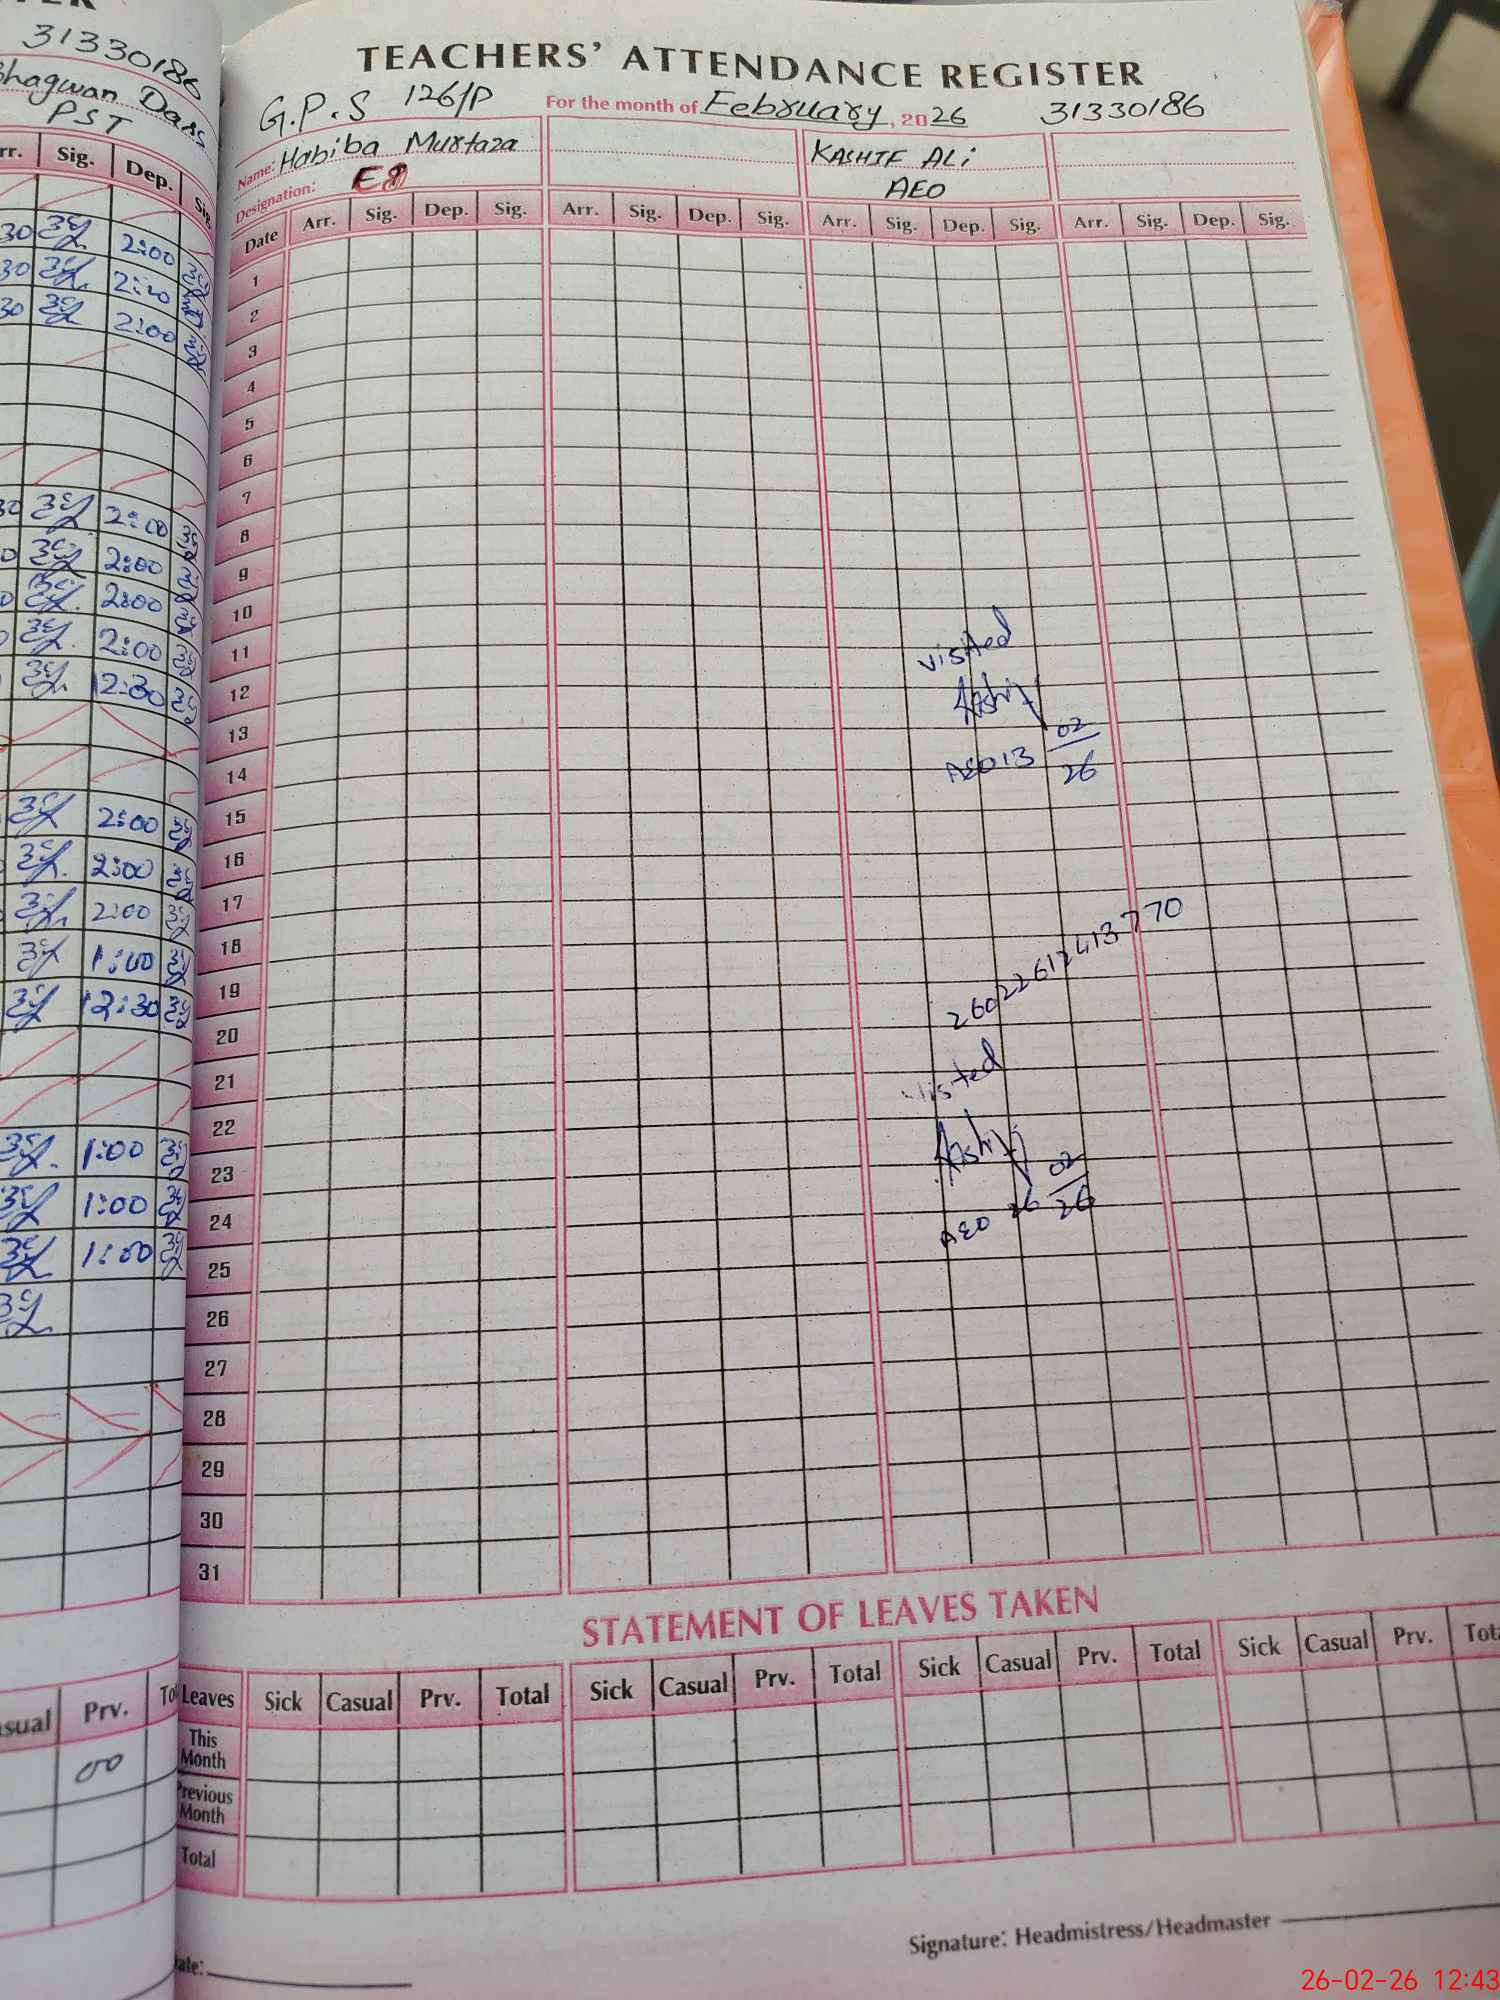 31330186
Bhagwan Dass
PST
rr. Sig. Dep. Sig
30 2:00
30 2:00
30 2:00
30 2:00
0 2:00
0 2:00
2:00
12:30
2:00
2:00
2:00
1:00
12:30
1:00
1:00
1:00
asual Prv. To
00
TEACHERS' ATTENDANCE REGISTER
G.P.S 126/P For the month of February, 2026 31330186
Name: Habiba Murtaza KASHIF ALi
Designation: AEO
Date Arr. Sig. Dep. Sig. Arr. Sig. Dep. Sig. Arr. Sig. Dep. Sig. Arr. Sig. Dep. Sig.
1
2
3
4
5
6
7
8
9
10
11 visited
12
13 02
14 AEO 13 26
15
16
17
18
19 26022612413770
20
21 visited
22
23 02
24 AEO 26 26
25
26
27
28
29
30
31
STATEMENT OF LEAVES TAKEN
Leaves Sick Casual Prv. Total Sick Casual Prv. Total Sick Casual Prv. Total Sick Casual Prv. Tot
This Month
Previous Month
Total
ate:
Signature: Headmistress/Headmaster
26-02-26 12:43